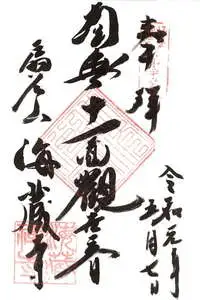 奉拝
令和元年
五月七日
南無十一面觀世音
扇谷 海蔵寺